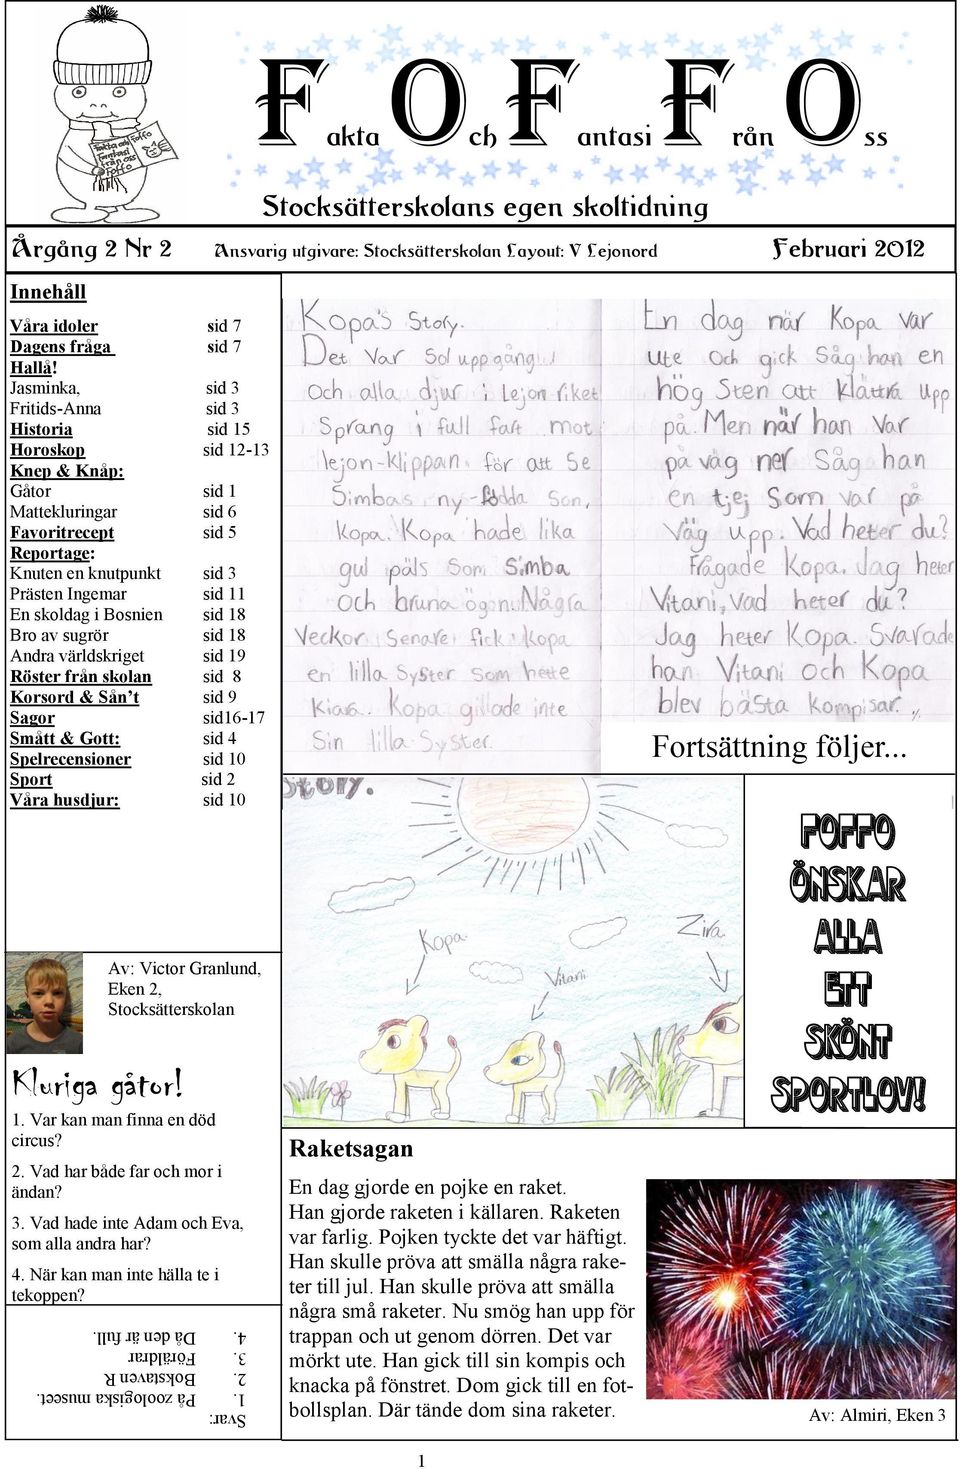 Fakta och
Fantasi
från oss
Foffo
Foffo
Fakta Och Fantasi Från Oss
Stocksätterskolans egen skoltidning
Årgång 2 Nr 2 Ansvarig utgivare: Stocksätterskolan Layout: V Lejonord Februari 2012
Innehåll
Våra idoler sid 7
Dagens fråga sid 7
Hallå!
Jasminka, sid 3
Fritids-Anna sid 3
Historia sid 15
Horoskop sid 12-13
Knep & Knåp:
Gåtor sid 1
Mattekluringar sid 6
Favoritrecept sid 5
Reportage:
Knuten en knutpunkt sid 3
Prästen Ingemar sid 11
En skoldag i Bosnien sid 18
Bro av sugrör sid 18
Andra världskriget sid 19
Röster från skolan sid 8
Korsord & Sån’t sid 9
Sagor sid16-17
Smått & Gott: sid 4
Spelrecensioner sid 10
Sport sid 2
Våra husdjur: sid 10
Av: Victor Granlund,
Eken 2,
Stocksätterskolan
Kluriga gåtor!
1. Var kan man finna en död
circus?
2. Vad har både far och mor i
ändan?
3. Vad hade inte Adam och Eva,
som alla andra har?
4. När kan man inte hälla te i
tekoppen?
Svar:
1. På zoologiska museet.
2. Bokstaven R
3. Föräldrar
4. Då den är full.
Kopa's Story.
Det Var Sol uppgång
och alla djur i Lejon riket
Sprang i full fart mot
lejon-klippan. för att Se
Simbas ny-födda Son,
Kopa. Kopa hade lika
gul päls Som Simba
Och bruna ögon. Några
Veckor Senare fick Kopa
en lilla Syster Som hette
Kiara. Kopa gillade inte
Sin lilla Syster.
En dag när Kopa Var
ute Och gick Såg han en
hög Sten att Klättra Upp
på. Men när han Var
på väg ner Såg han
en tjej Som var på
Väg upp. Vad heter du?
Frågade Kopa. Jag heter
Vitani, Vad heter du?
Jag heter Kopa. Svarade
han. Vitani Och Kopa
blev bästa Kompisar.
Fortsättning följer...
story.
Kopa.
Vitani
Zira.
FOFFO
ÖNSKAR
ALLA
ETT
SKÖNT
SPORTLOV!
Raketsagan
En dag gjorde en pojke en raket.
Han gjorde raketen i källaren. Raketen
var farlig. Pojken tyckte det var häftigt.
Han skulle pröva att smälla några rake-
ter till jul. Han skulle pröva att smälla
några små raketer. Nu smög han upp för
trappan och ut genom dörren. Det var
mörkt ute. Han gick till sin kompis och
knacka på fönstret. Dom gick till en fot-
bollsplan. Där tände dom sina raketer.
Av: Almiri, Eken 3
1